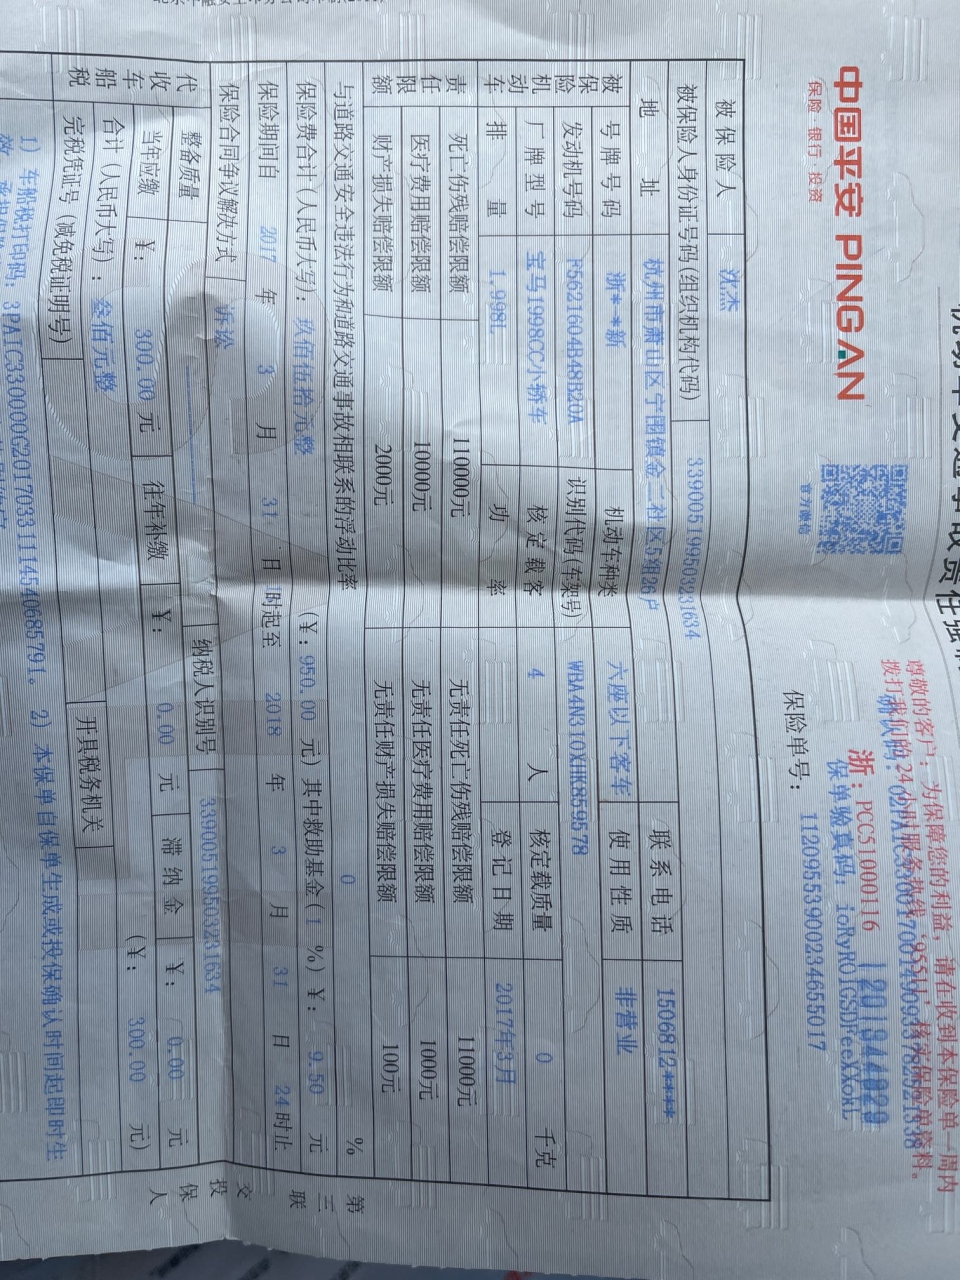 中国平安 PING AN
保险·银行·投资
官方微信
尊敬的客户：为保障您的利益，请在收到本保险单一周内
拨打我们的24小时服务热线
核实保险单资料。
浙：PCC51000116
保单验真码：
保险单号：
11209553900234655017
被保险人 沈杰
被保险人身份证号码(组织机构代码) 339005199503231634
地址 杭州市萧山区宁围镇金二社区5组26户 联系电话 1506812****
被保险机动车
号牌号码 浙**新 机动车种类 六座以下客车 使用性质 非营业
发动机号码 识别代码(车架号) WBA4N310XHK859578
厂牌型号 宝马1998CC小轿车 核定载客 4 人 核定载质量 0 千克
排量 1.998L 功率 登记日期 2017年3月
责任限额
死亡伤残赔偿限额 110000元 无责任死亡伤残赔偿限额 11000元
医疗费用赔偿限额 10000元 无责任医疗费用赔偿限额 1000元
财产损失赔偿限额 2000元 无责任财产损失赔偿限额 100元
与道路交通安全违法行为和道路交通事故相联系的浮动比率 0 %
保险费合计(人民币大写)：玖佰伍拾元整 (¥：950.00 元)其中救助基金(1 %)¥：9.50 元
保险期间自 2017 年 3 月 31 日 时起至 2018 年 3 月 31 日 24时止
保险合同争议解决方式 诉讼
代收车船税
整备质量 纳税人识别号 339005199503231634
当年应缴 ¥：300.00 元 往年补缴 ¥：0.00 元 滞纳金 ¥：0.00 元
合计(人民币大写)：叁佰元整 (¥：300.00 元)
完税凭证号(减免税证明号) 开具税务机关
1) 车船税打印码：3PAIC330000G20170331114540685791。 2) 本保单自保单生成或投保确认时间起即时生
第三联
交投保人